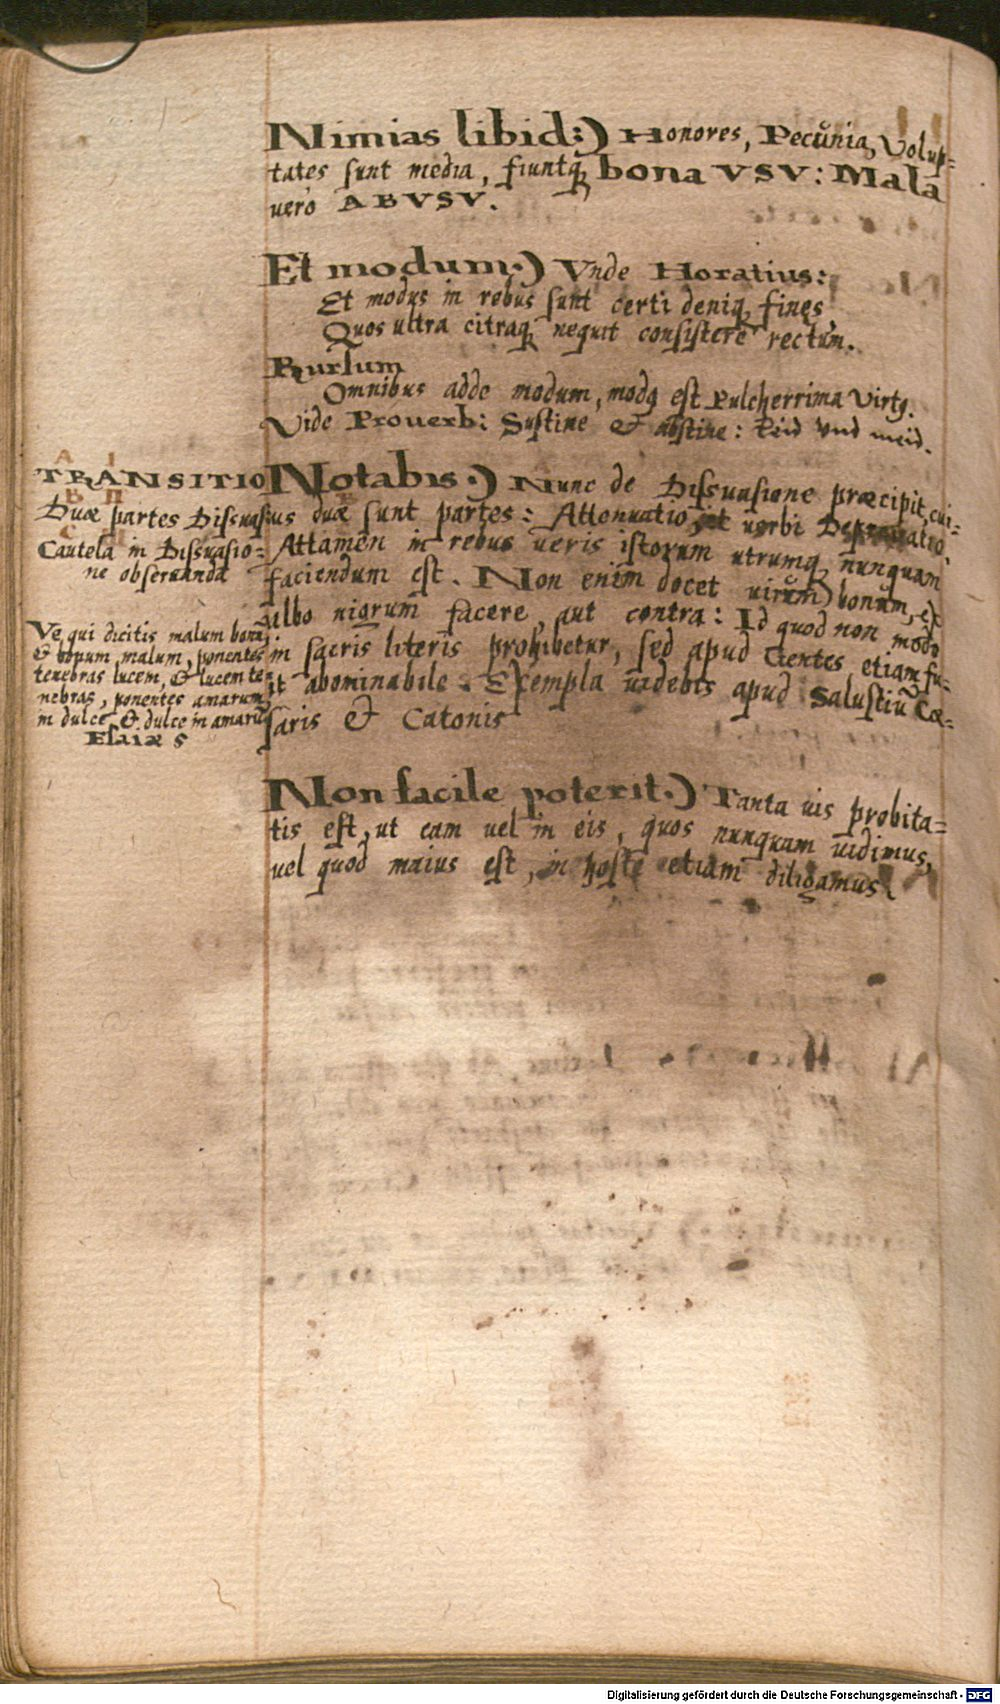 Nimias libid:) Honores, Pecūnia, Volup=
tates sunt media, fiuntq́ bona VSV: Mala
uero ABVSV.
Et modum.) Vnde Horatius:
Et modus in rebus sunt certi deniq, fines
Quos ultra citraq nequit consistere rectum.
Rursum
Omnibus adde modum, modq est Pulcherrima Virtq.
Vide Prouerb: Sustine & abstine: leid vnd meid.
TRANSITIO
Duæ partes Dissuasi
Cautela in Dissuasio=
ne obseruanda
Notabis.) Nunc de Dissuasione præcipit, cui=
us duæ sunt partes: Attenuatio, et uerbi Deprauatio
Attamen in rebus ueris istorum utrumq, nunquam
faciendum est. Non enim docet uirum bonum, ex
albo nigrum facere, aut contra: Id quod non modo
in sacris literis prohibetur, sed apud Gentes etiam fu=
it abominabile. Exempla uidebis apud Salustiū Cæ=
saris & Catonis
Ve qui dicitis malum bonū,
& bonum malum, ponentes
tenebras lucem, & lucem te=
nebras, ponentes amarum
in dulce, & dulce in amarū
Esaiæ 5
Non facile poterit.) Tanta uis probita=
tis est, ut eam uel in eis, quos nunquam uidimus,
uel quod maius est, in hoste etiam diligamus.
Digitalisierung gefördert durch die Deutsche Forschungsgemeinschaft - DFG